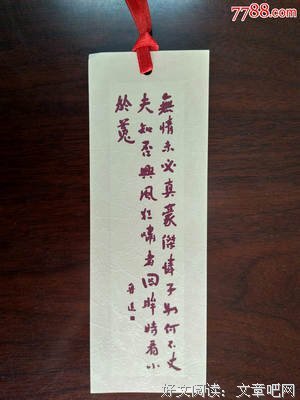 7788.com
無情未必真豪傑憐子如何不丈
夫知否興風狂嘯者回眸時看小
於菟
魯迅
好文阅读:文章吧网